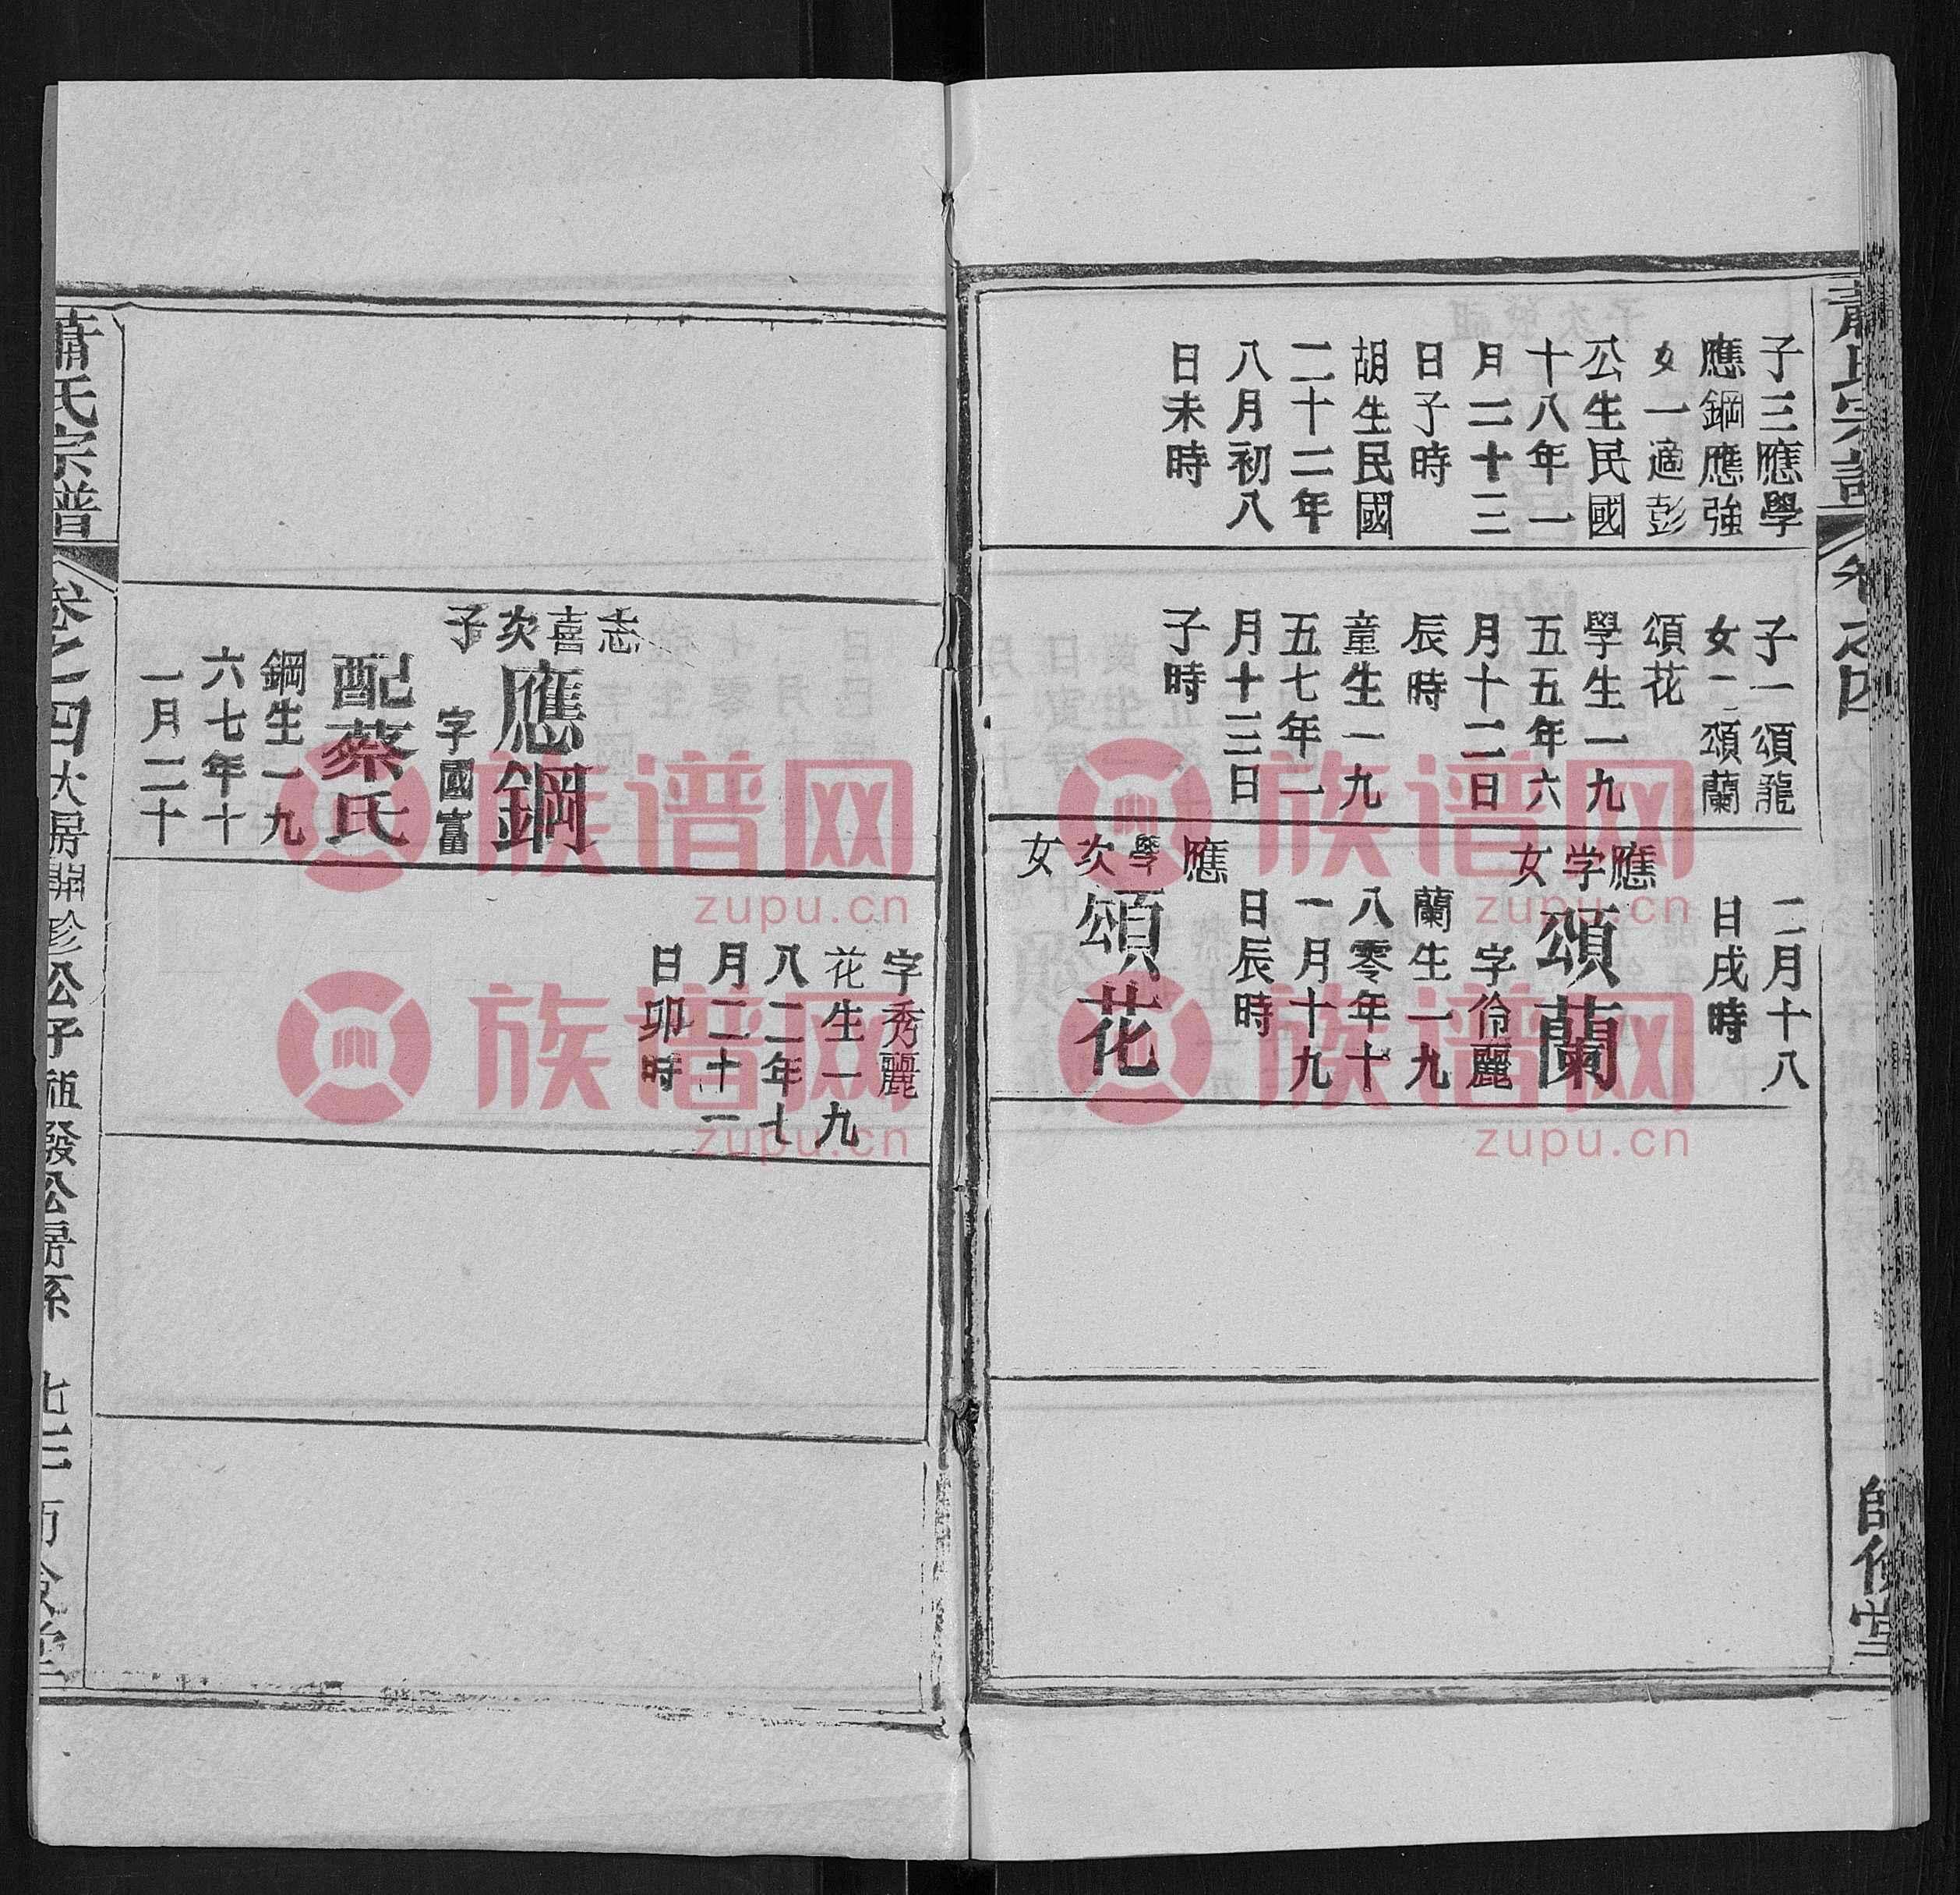 蕭氏宗譜
卷之四
師儉堂
子三應學
應鋼應強
女一適彭
公生民國
十八年一
月二十三
日子時
胡生民國
二十二年
八月初八
日未時
子一頌龍
女二頌蘭
頌花
學生一九
五五年六
月十二日
辰時
童生一九
五七年一
月十三日
子時
二月十八
日戌時
應学女
頌蘭
字伶麗
蘭生一九
八零年十
一月十九
日辰時
應學次女
頌花
志喜次子
應鋼
字國富
配蔡氏
鋼生一九
六七年十
一月二十
字秀麗
花生一九
八二年七
月二十一
日卯時
蕭氏宗譜
卷之四
大房開珍公子祖發公房系
七三
族谱网
zupu.cn
族谱网
zupu.cn
族谱网
zupu.cn
族谱网
zupu.cn